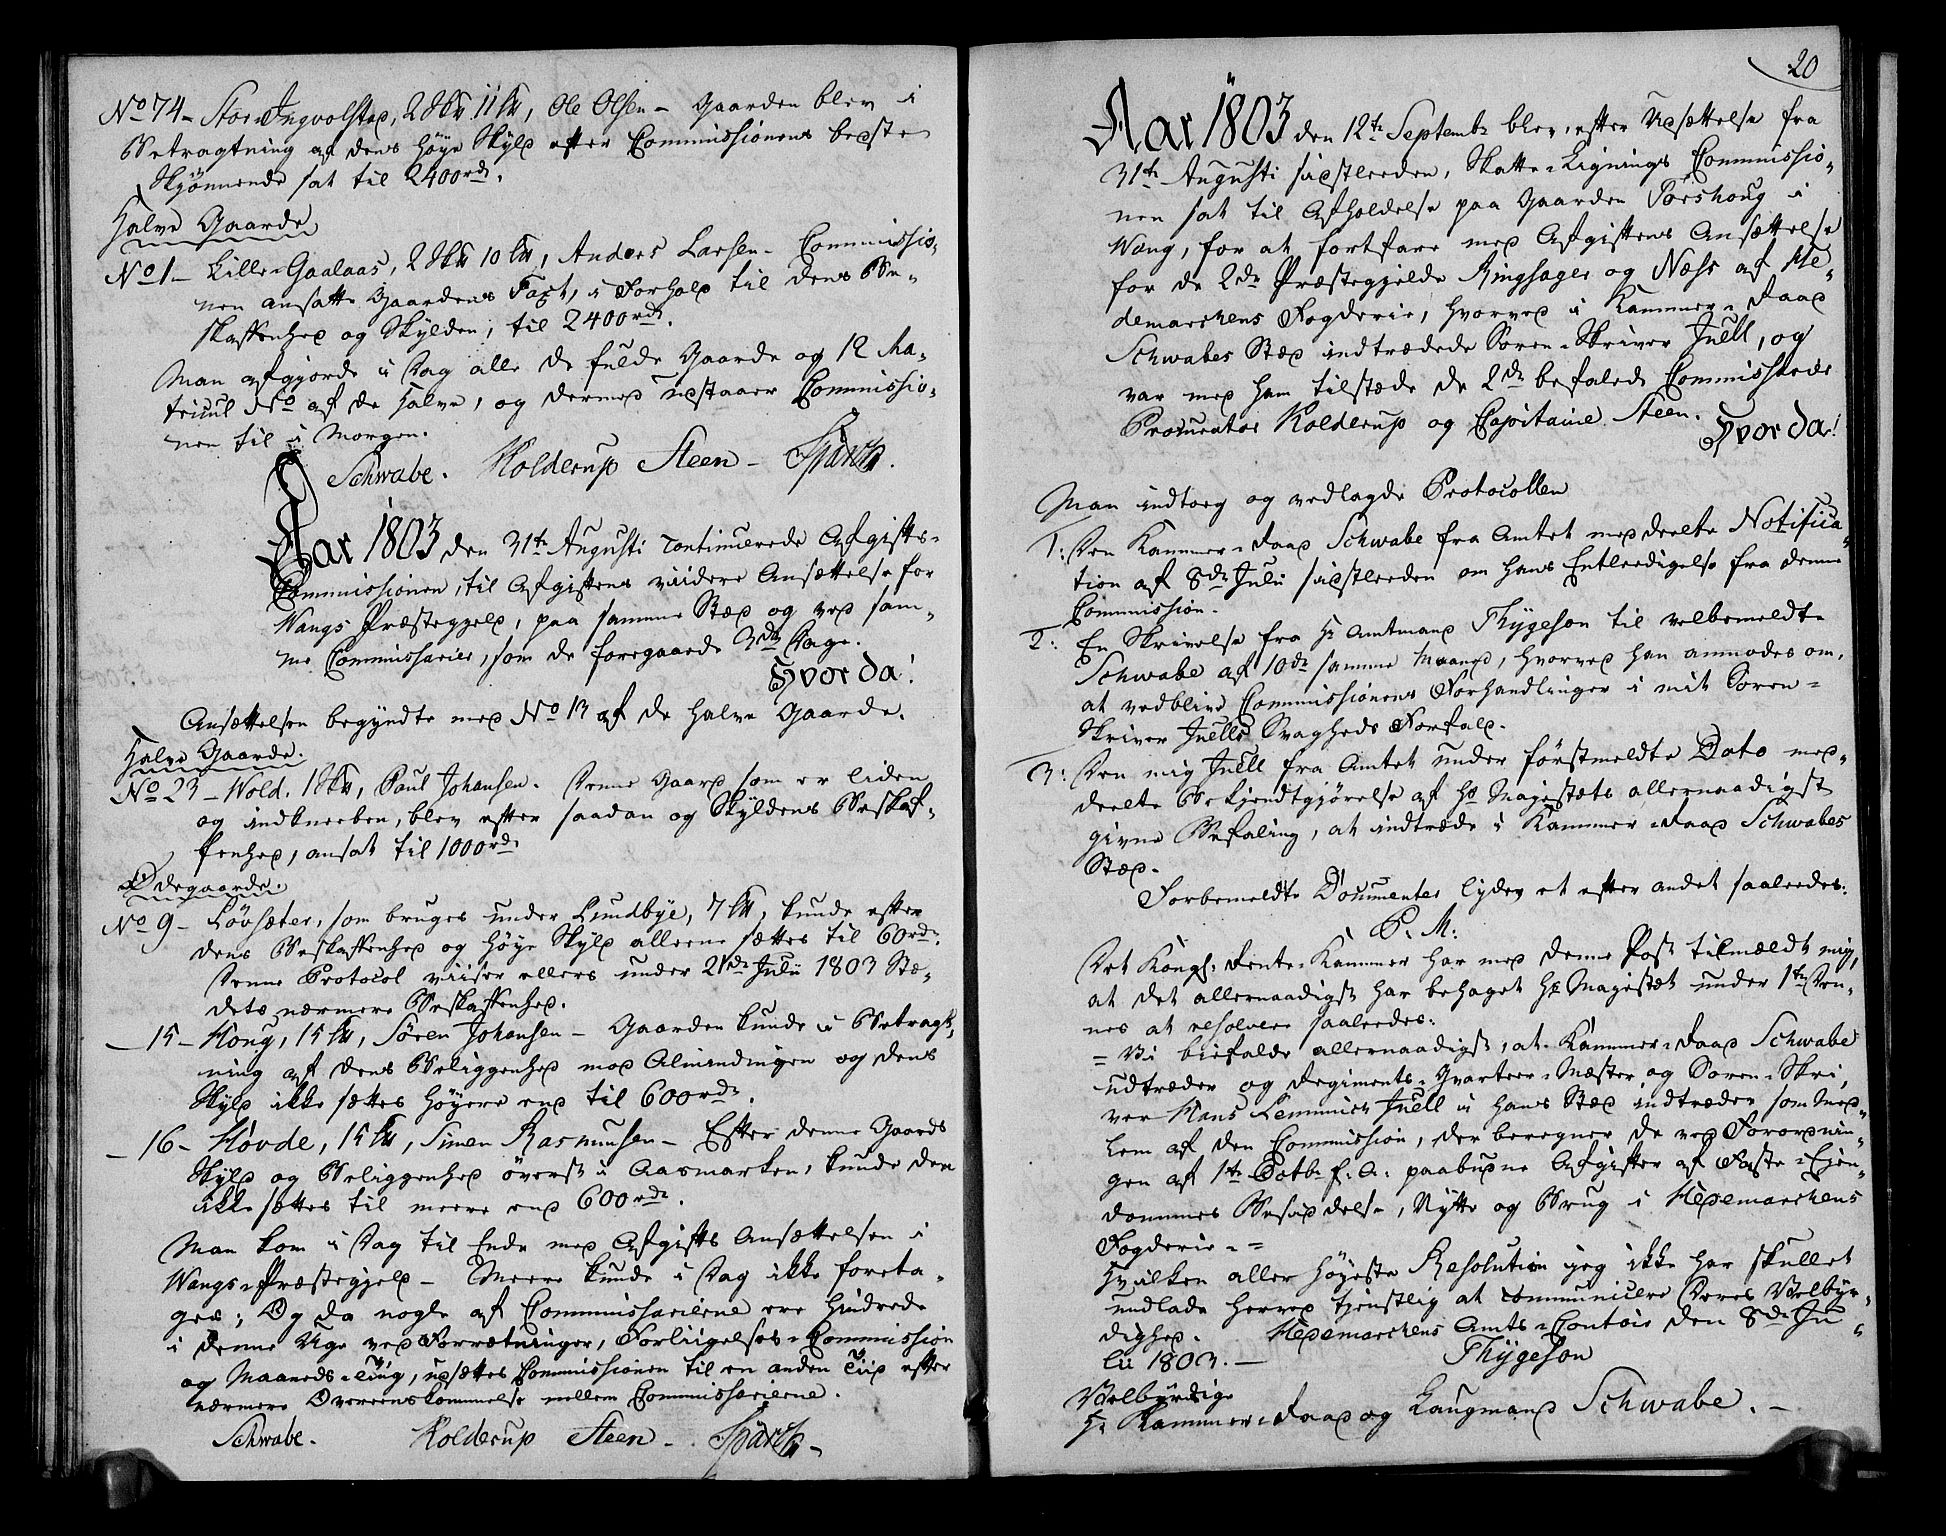 No 74 - Stor-Ingvolstad, 2 Sk℔ 11 ℔, Ole Olsen - Gaarden blev i
Betragtning af dens høye Skyld efter Commissionens bedste
Skjönnende sat til 2400 rdr.
Halve Gaarde
No 1 - Lille-Gaalaas, 2 Sk℔ 10 ℔, Anders Larsen - Commissio-
nen ansatte Gaardens Taxt, i Forhold til dens Be-
skaffenhed og Skylden, til 2400 rdr.
Man afgjorde i Dag alle de fulde Gaarde og 12 Ma-
tricul No af de Halve, og dermed udstaaer Commissio-
nen til i Morgen.
Schwabe. Kolderup Steen - Spärck.
Aar 1803 den 31te Augusti continuerede Afgifts-
Commissionen, til Afgiftens viidere Ansættelse for
Wangs Præstegjeld, paa samme Stæd og ved sam-
me Commissarier, som de foregaaende 3de Dage.
Hvor da!
Ansættelsen begyndte med No 13 af de halve Gaarde.
Halve Gaarde.
No 23 - Wold. 1 Sk℔, Paul Johansen. Denne Gaard som er liden
og indkneeben, blev efter saadan og Skyldens Beskaf-
fenhed, ansat til 1000 rdr
Ødegaarde.
No 9 - Lövsæter, som bruges under Lundbye, 7 ℔, kunde efter
dens Beskaffenhed og høye Skyld alleene sættes til 60 rdr.
Denne Protocol viiser ellers under 21de Julii 1803 Stæ-
dets nærmere Beskaffenhed.
- 15 - Houg, 15 ℔, Sören Johansen - Gaarden kunde i Betragt-
ning af dens Beliggenhed mod Almindingen og dens
Skyld ikke sættes höyere end til 600 rdr.
- 16 - Hovde, 15 ℔, Simen Rasmusen - Efter denne Gaards
Skyld og Beliggenhed överst i Aasmarken, kunde den
ikke sættes til meere end 600 rdr.
Man kom i Dag til Ende med Afgifts Ansættelsen i
Wangs-Præstegjeld - Meere kunde i Dag ikke foreta-
ges; Og da nogle af Commissarierne ere hindrede
i denne Uge ved Forrætninger, Forliigelses-Commission
og Maaneds-Ting, udsættes Commissionen til en anden Tiid efter
nærmere Overeenskommelse mellem Commissarierne.
Schwabe. Kolderup Steen - Spärck -
20
Aar 1803 den 12te Septembr blev, efter Udsættelse fra
31te Augusti sidstleeden, Skatte-Lignings Commissio-
nen sat til Afholdelse paa Gaarden Torshoug i
Wang, for at fortfare med Afgiftens Ansættelse
for de 2de Præstegjelde Ringsager og Næss af He-
demarchens Fogderie, hvorved i Kammer-Raad
Schwabes Stæd indtrædede Soren-Skriver Juell, og
var med ham tilstæde de 2de befalede Commissarier
Procurator Kolderup og Capitaine Steen. Hvor da!
Man indtog og vedlagde Protocollen
1: Den Kammer-Raad Schwabe fra Amtet meddeelte Notifica-
tion af 8de Julii sidstleeden om hans Entleedigelse fra denne
Commission.
2: En Skrivelse fra Hr Amtmand Thygeson til velbemeldte
Schwabe af 10de samme Maaned, hvorved han anmodes om,
at vedblive Commissionens Forhandlinger i mit Soren-
Skriver Juells Svagheds Forfald.
3: Den mig Juell fra Amtet under förstmeldte Dato med-
deelte Bekjendtgjörelse af Hs Majestæts allernaadigst
givne Befaling, at indtræde i Kammer-Raad Schwabes
Stæd.
Forbemeldte Documenter lyder et efter andet saaleedes:
P. M:
Det Kongl: Rente-Kammer har med denne Post tilmældt mig,
at det allernaadigst har behaget Hs Majestæt under 1te Den-
nes at resolvere saaleedes:
= Vi biefalde allernaadigst, at Kammer-Raad Schwabe
udtræder og Regiments-Qvarteer-Mæster og Soren-Skri-
ver Hans Lemmich Juell i hans Stæd indtræder som Med-
lem af den Commission, der beregner de ved Forordnin-
gen af 1te Octbr f. A: paabudne Afgifter af Faste-Ejen-
dommes Besiddelse, Nytte og Brug i Hedemarchens
Fogderie - =
Hvilken aller høyeste Resolution jeg ikke har skullet
undlade herved tjenstlig at communicere Deres Velbyr-
dighed. Hedemarchens Amts-Contoir den 8de Ju-
lii 1803. - Thygeson
Velbyrdige
Hr Kammer-Raad og Laugmand Schwabe. -